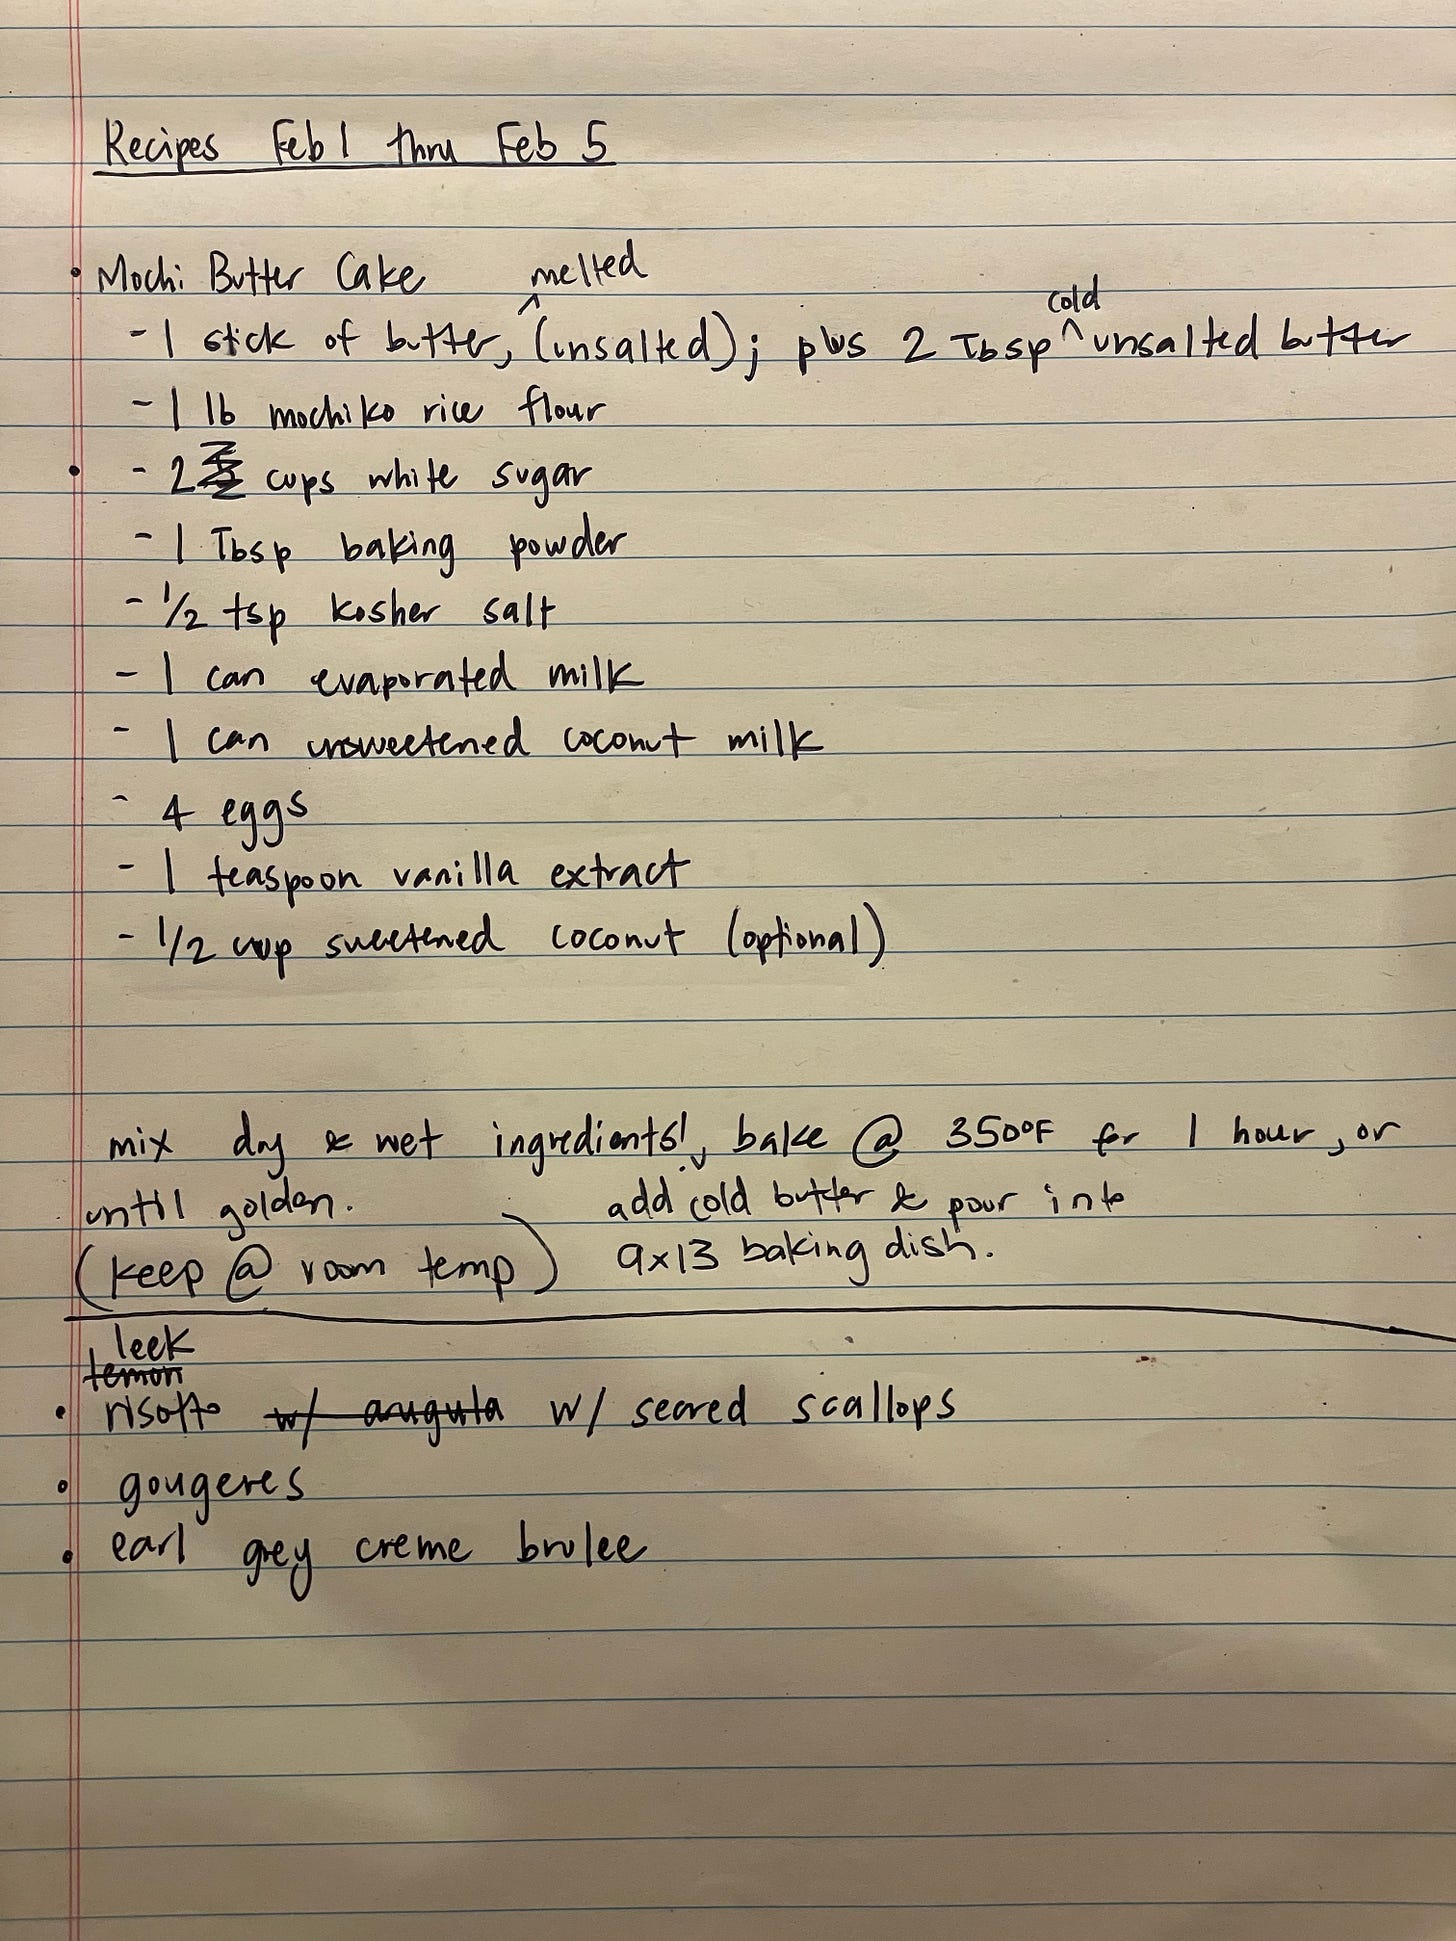 Recipes Feb 1 thru Feb 5
• Mochi Butter Cake
melted
cold
- 1 stick of butter, ^ (unsalted); plus 2 Tbsp ^ unsalted butter
- 1 lb mochiko rice flour
• - 2 cups white sugar
- 1 Tbsp baking powder
- 1/2 tsp kosher salt
- 1 can evaporated milk
- 1 can unsweetened coconut milk
- 4 eggs
- 1 teaspoon vanilla extract
- 1/2 cup sweetened coconut (optional)
mix dry & wet ingredients!, bake @ 350°F for 1 hour, or
until golden.
add cold butter & pour into
9x13 baking dish.
(keep @ room temp)
leek
lemon
• risotto w/ arugula w/ seared scallops
• gougeres
• earl grey creme brulee